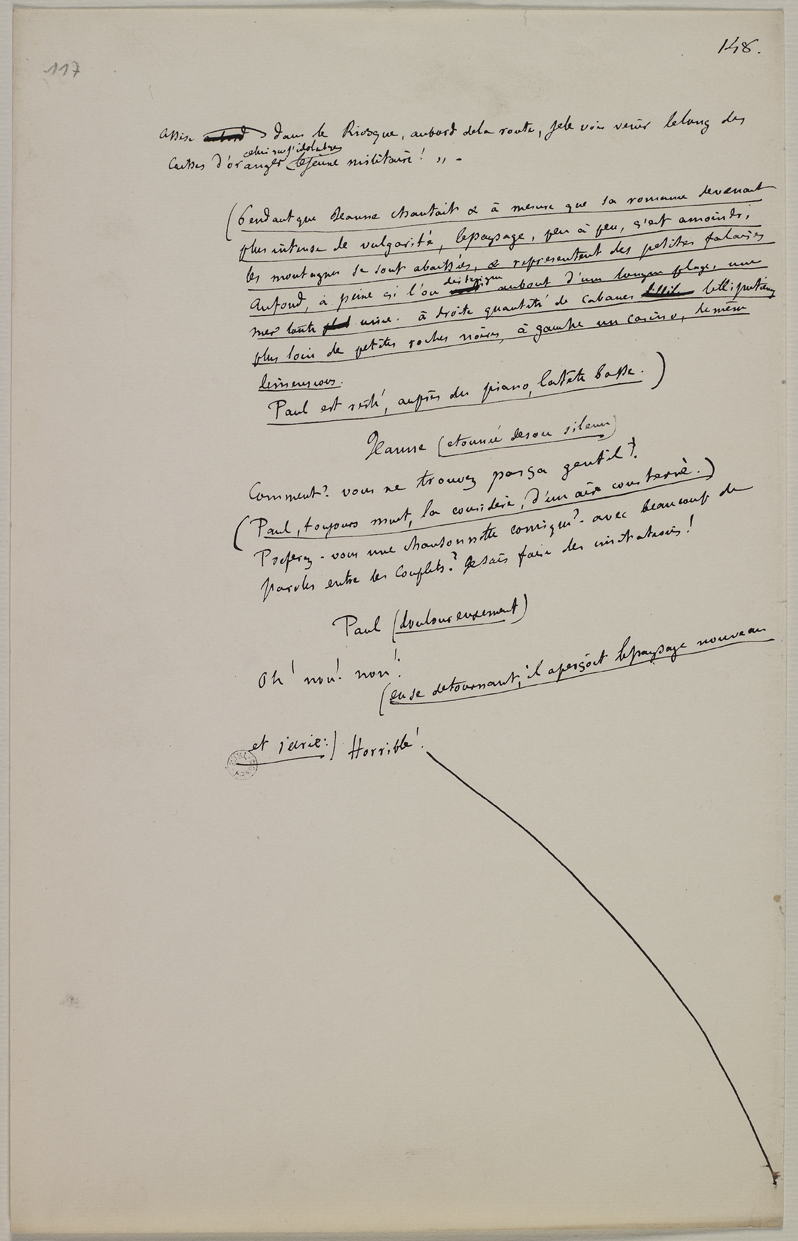 148.
117
assise dans le Kiosque, au bord de la route, je le vois venir le long des
celui que j'idolâtre
Caisses d'oranger le jeune militaire ! „ –
(Pendant que Jeanne chantait & à mesure que sa romance devenait
plus intense de vulgarité, le paysage, peu à peu, s'est amoindri,
les montagnes se sont abaissées, & représentent des petites falaises
distingue
Au fond, à peine si l'on au bout d'une longue plage, une
mer toute unie. à droite quantité de cabanes lilliputiennes
plus loin de petites roches noires, à gauche un casino, de même
dimensions.
Paul est resté, auprès du piano, la tête basse. )
Jeanne (étonnée de son silence)
Comment ? vous ne trouvez pas ça gentil ?
(Paul, toujours muet, la considère, d'un air consterné.)
Préferez-vous une chansonnette comique ? avec beaucoup de
paroles entre les couplets ? Je sais faire des imitations !
Paul (douloureusement)
Oh ! non ! non !
(en se détournant, il aperçoit le paysage nouveau
et s'écrie :) Horrible !